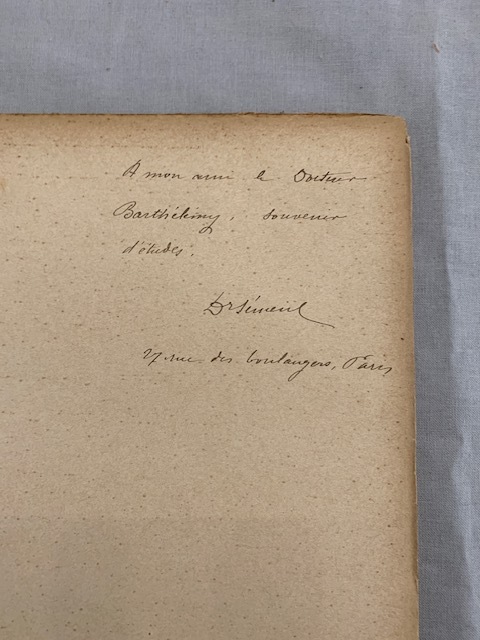 A mon ami le Docteur
Barthélemy, souvenir
d'études.
Dr Sémeril
27 rue des boulangers, Paris